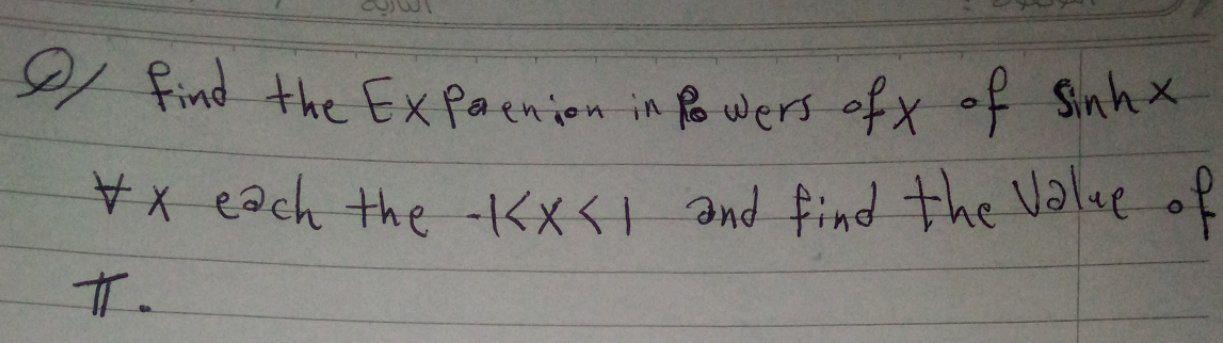 Q/ find the Expaenion in Powers of x of Sinhx
∀ x each the -1<x<1 and find the Value of
π.